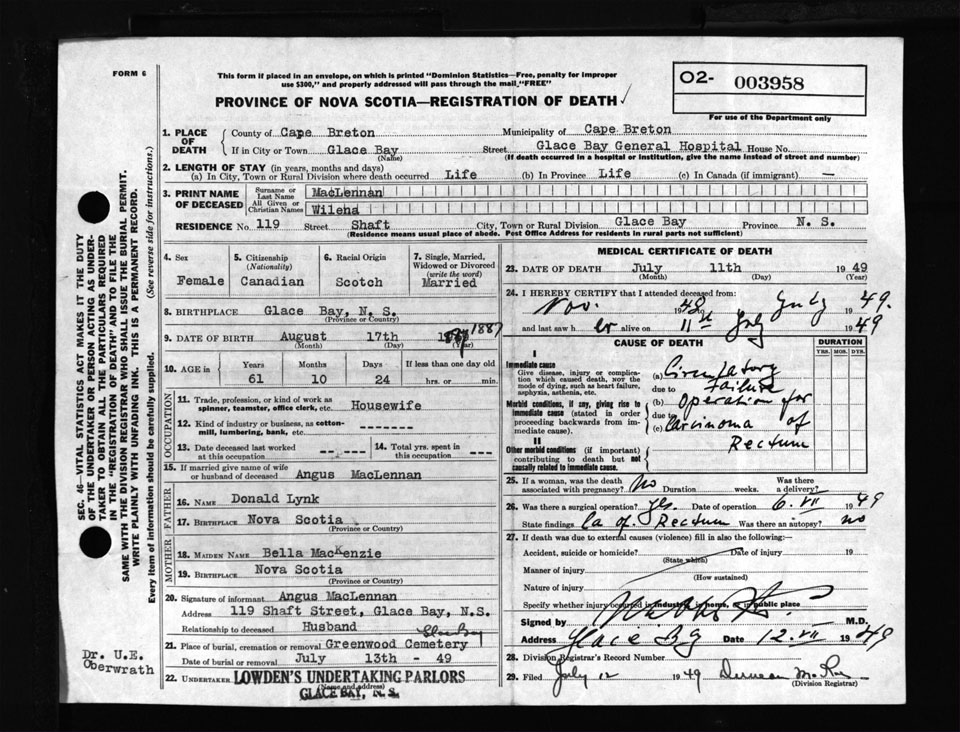 FORM 6
This form if placed in an envelope, on which is printed "Dominion Statistics—Free, penalty for improper
use $300," and properly addressed will pass through the mail, "FREE"
O2- 003958
For use of the Department only
PROVINCE OF NOVA SCOTIA—REGISTRATION OF DEATH ✓
1. PLACE OF DEATH
County of Cape Breton Municipality of Cape Breton
If in City or Town Glace Bay Street Glace Bay General Hospital House No.
(Name) (If death occurred in a hospital or institution, give the name instead of street and number)
2. LENGTH OF STAY (in years, months and days)
(a) In City, Town or Rural Division where death occurred Life (b) In Province Life (c) In Canada (if immigrant) —
3. PRINT NAME OF DECEASED
Surname or Last Name MacLennan
All Given or Christian Names Wilena
RESIDENCE No. 119 Street Shaft City, Town or Rural Division Glace Bay Province N. S.
(Residence means usual place of abode. Post Office Address for residents in rural parts not sufficient)
4. Sex
Female
5. Citizenship
(Nationality)
Canadian
6. Racial Origin
Scotch
7. Single, Married,
Widowed or Divorced
(write the word)
Married
8. BIRTHPLACE Glace Bay, N. S.
(Province or Country)
9. DATE OF BIRTH August 17th 1887
(Month) (Day) (Year)
10. AGE in
Years Months Days If less than one day old
61 10 24 hrs. or min.
OCCUPATION
11. Trade, profession, or kind of work as
spinner, teamster, office clerk, etc. Housewife
12. Kind of industry or business, as cotton-
mill, lumbering, bank, etc. - - - - - - - -
13. Date deceased last worked
at this occupation -- ---
14. Total yrs. spent in
this occupation ---
15. If married give name of wife
or husband of deceased Angus MacLennan
FATHER
16. NAME Donald Lynk
17. BIRTHPLACE Nova Scotia
(Province or Country)
MOTHER
18. MAIDEN NAME Bella MacKenzie
19. BIRTHPLACE Nova Scotia
(Province or Country)
20. Signature of informant Angus MacLennan
Address 119 Shaft Street, Glace Bay, N.S.
Relationship to deceased Husband
Glace Bay
21. Place of burial, cremation or removal Greenwood Cemetery
Date of burial or removal July 13th - 49
22. UNDERTAKER LOWDEN'S UNDERTAKING PARLORS
(Name and address)
GLACE BAY, N. S.
MEDICAL CERTIFICATE OF DEATH
23. DATE OF DEATH July 11th 1949
(Month) (Day)
24. I HEREBY CERTIFY that I attended deceased from:
Nov. 1948 July 1949.
and last saw h er alive on 11th July 1949
CAUSE OF DEATH
DURATION
YRS. MOS. DYS.
I
Immediate cause
Give disease, injury or compli-
cation which caused death, NOT the
mode of dying, such as heart failure,
asphyxia, asthenia, etc.
(a) Circulatory
due to Failure
Morbid conditions, if any, giving rise to
immediate cause (stated in order
proceeding backwards from im-
mediate cause).
(b) Operation for
due to
(c) Carcinoma of
Rectum
II
Other morbid conditions (if important)
contributing to death but not
causally related to immediate cause.
25. If a woman, was the death
associated with pregnancy? No Duration weeks. Was there
a delivery?
26. Was there a surgical operation? Yes. Date of operation 6. VII 1949
State findings Ca of. Rectum Was there an autopsy? no
27. If death was due to external causes (violence) fill in also the following:
Accident, suicide or homicide? Date of injury 19
(State which)
Manner of injury
(How sustained)
Nature of injury
Specify whether injury occurred in industry, in home, in public place
Signed by M.D.
Address Glace Bay Date 12. VII 1949
28. Division Registrar's Record Number
29. Filed July 12 1949 Duncan
(Division Registrar)
SEC. 46—VITAL STATISTICS ACT MAKES IT THE DUTY
OF THE UNDERTAKER OR PERSON ACTING AS UNDER-
TAKER TO OBTAIN ALL THE PARTICULARS REQUIRED
IN THE "REGISTRATION OF DEATH" AND TO FILE THE
SAME WITH THE DIVISION REGISTRAR WHO SHALL ISSUE THE BURIAL PERMIT.
WRITE PLAINLY WITH UNFADING INK. THIS IS A PERMANENT RECORD.
Every item of information should be carefully supplied. (See reverse side for instructions.)
Dr. U.E.
Oberwrath